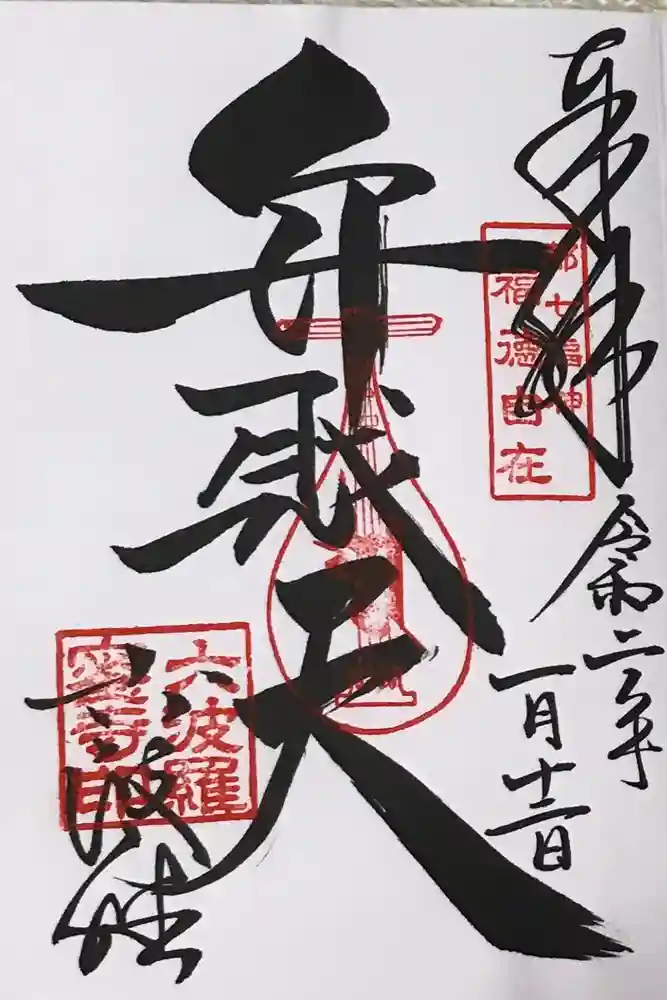 奉拝
都七福神
福徳自在
令和二年
一月十三日
弁財天
六波羅
蜜寺印
六波